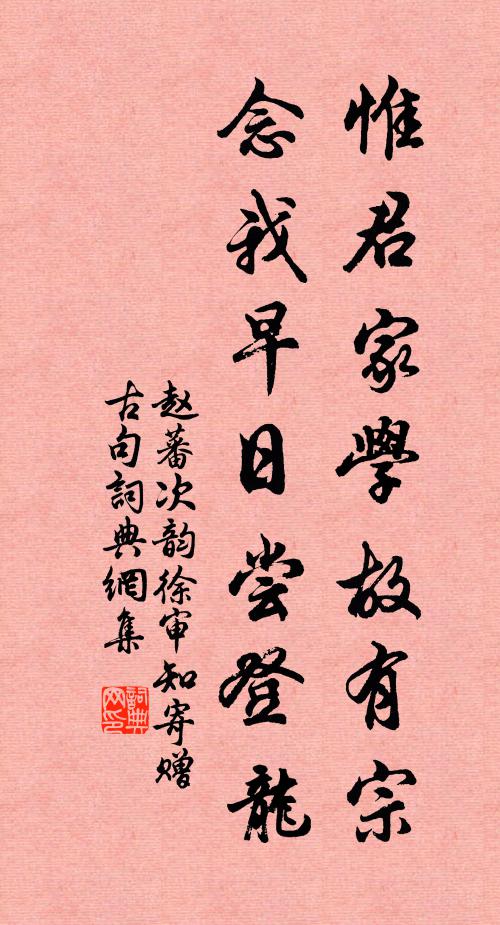 惟君家學故有宗
念我早日尝登龍
赵蕃次韵徐审知寄赠
古句詞典網集
詞典
网印